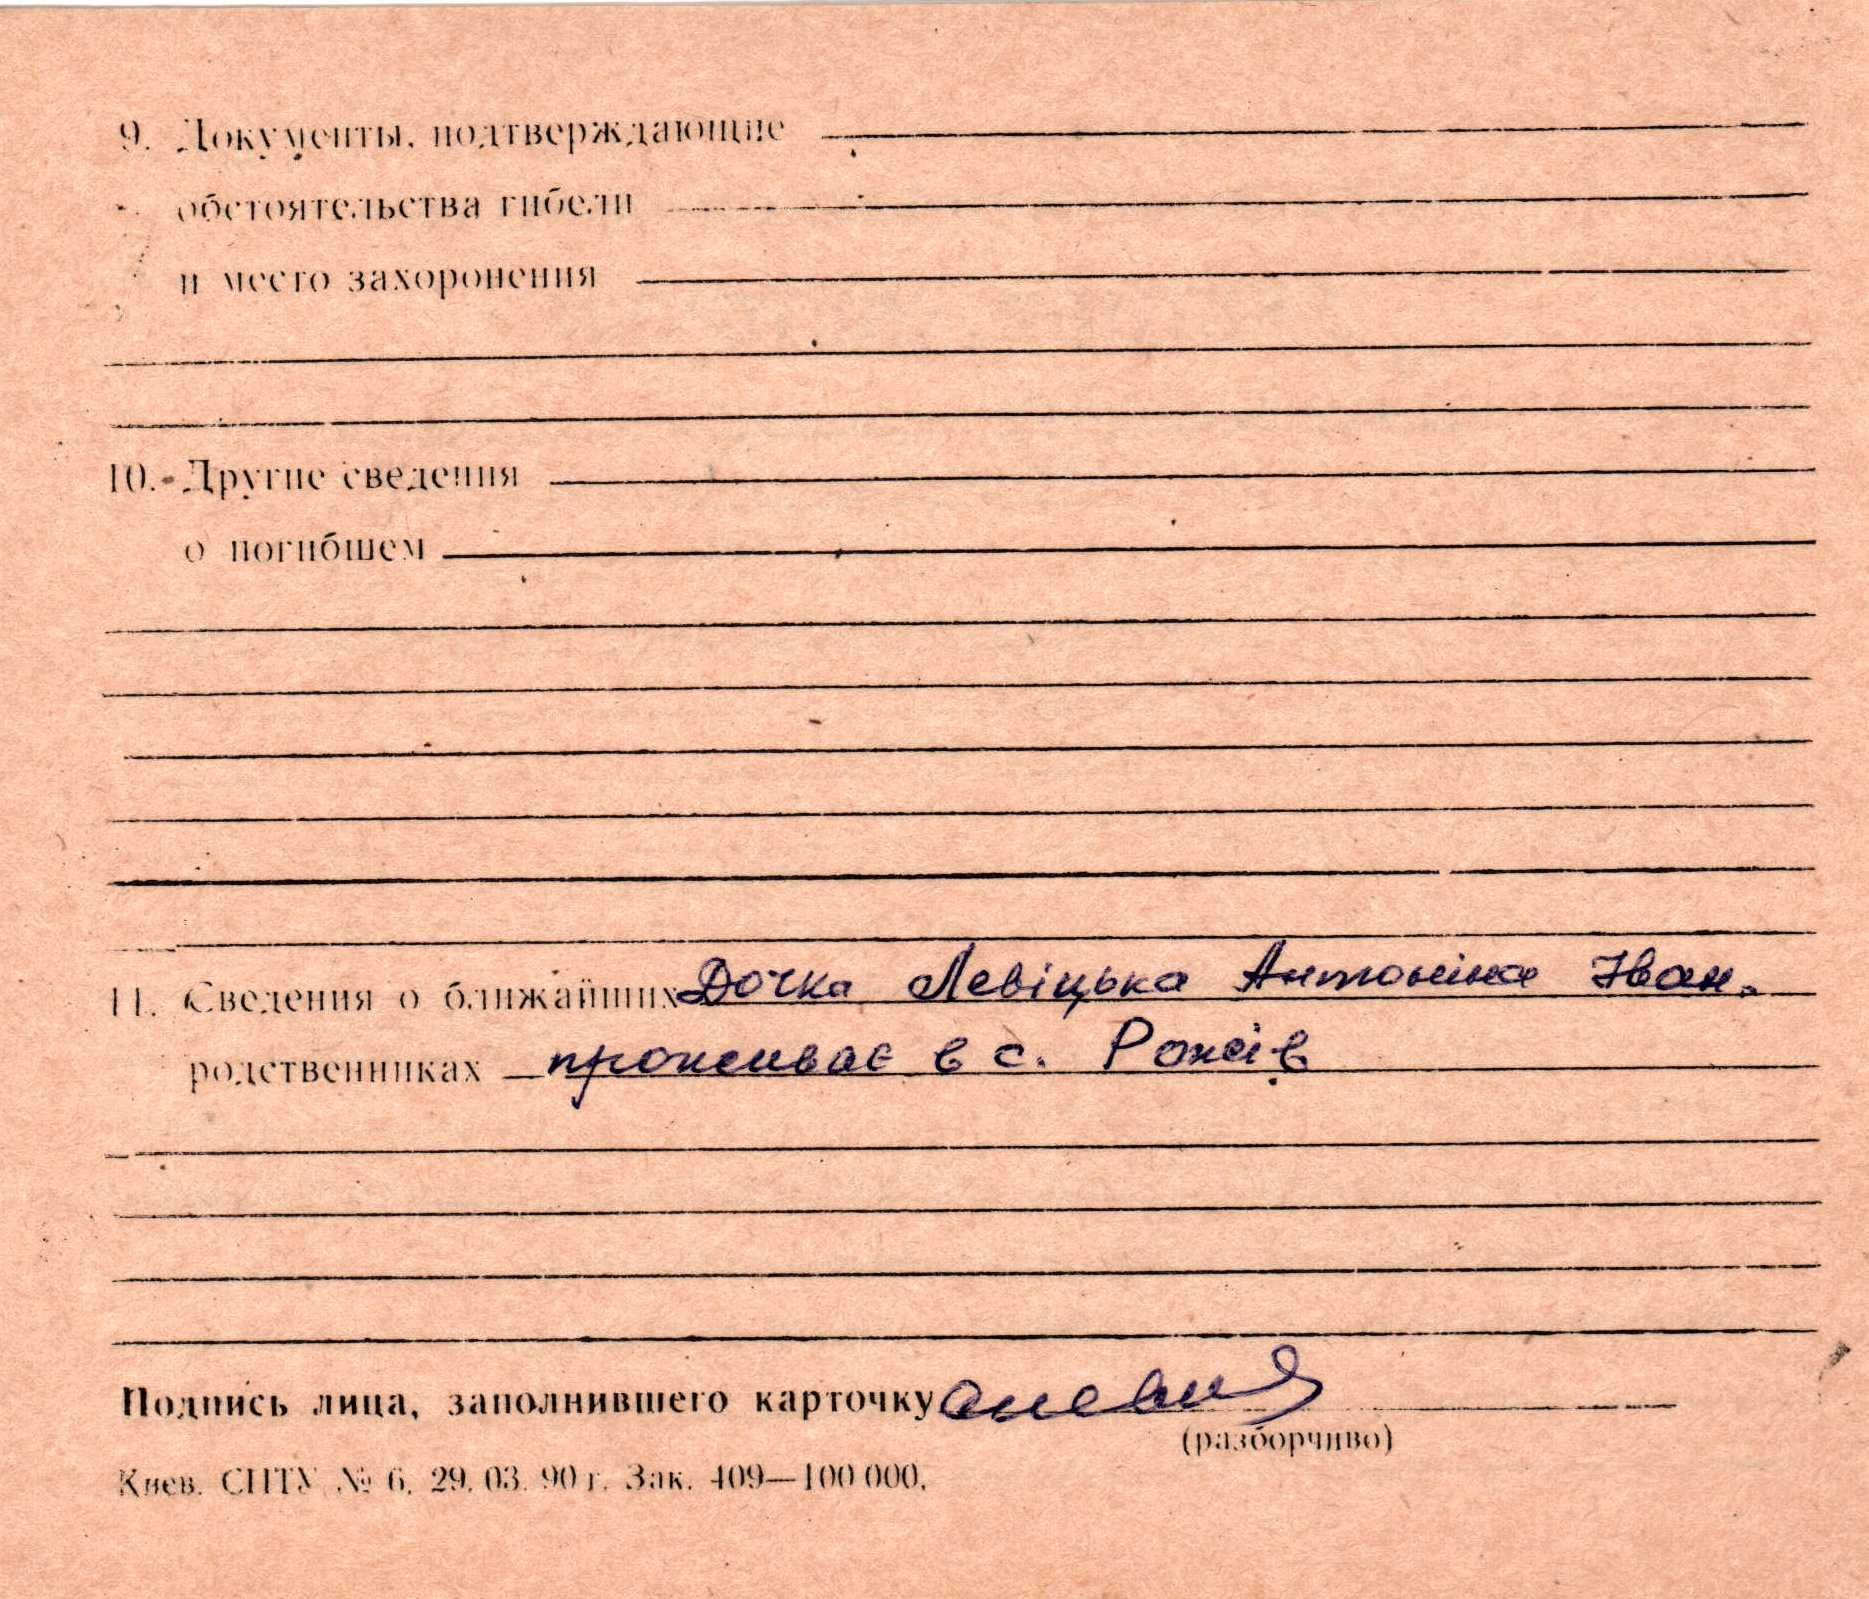 9. Документы, подтверждающие
обстоятельства гибели
и место захоронения
10. Другие сведения
о погибшем
11. Сведения о ближайших Дочка Левіцька Антоніна Іван.
родственниках проживає в с. Рожів
Подпись лица, заполнившего карточку
(разборчиво)
Киев. СПТУ № 6. 29. 03. 90 г. Зак. 409—100 000.